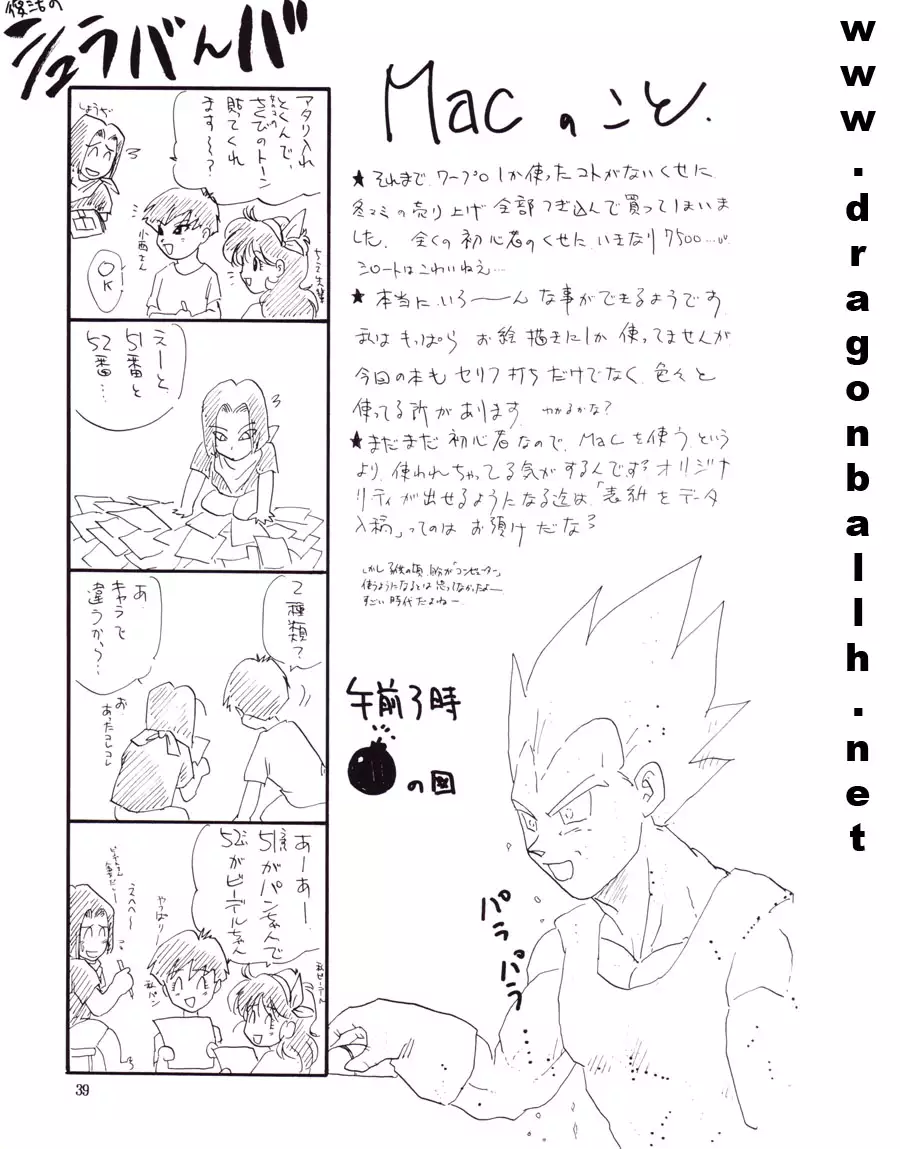 復活の
シュラバんバ
アタリ入れ
とくんで、
さくびのトーン
貼てくれ
ます～～?
しょうが
小西さん
OK
えーと
51番と
52番…
2種類?
あ、
キャラで
違うから…
お
あったコレコレ
あーあー
51番がパンちゃんで
52番がビーデルちゃん
えへへ～
やっぱり
私パン
私ビーデル
39
Macのこと.
★それまで、ワープロしか使ったコトがないくせに
冬コミの売り上げ全部つぎ込んで買ってしまいま
した。全くの初心者のくせに、いきなり7500…が
シロートはこわいねえ…
★本当にいろ――んな事ができるようです
私はもっぱら お絵描きにしか使ってませんが
今回の本も セリフ打ちだけでなく、色々と
使ってる所があります わかるかな?
★まだまだ初心者なので、Macを使うという
より、使われちゃってる気がするんです? オリジナ
リティが出せるようになる迄は、「表紙をデータ
入稿」ってのは お預けだな?
しかし子供の頃、自分が「コンピューター」
使うようになるとは思ってなかったよー
すごい時代だよねー
午前3時
の図
パラ
パラ
www.dragonballh.net